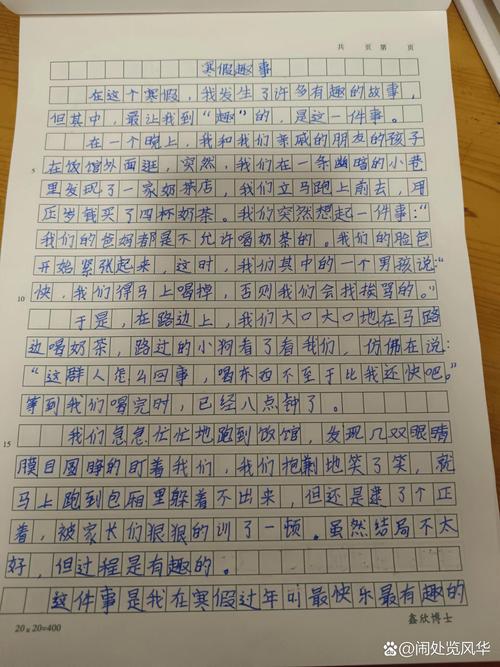 共 页 第 页
寒假趣事
在这个寒假，我发生了许多有趣的故事，
但其中，最让我到“趣”的，是这一件事。
在一个晚上，我和我们亲戚的朋友的孩子
5 在饭馆外面逛，突然，我们在一条幽暗的小巷
里发现了一家奶茶店，我们立马跑上前去，用
压岁钱买了四杯奶茶。我们突然想起一件事：“
我们的爸妈都是不允许喝奶茶的。我们的脸包
开始紧张起来，这时，我们其中的一个男孩说：“
10 快，我们得马上喝掉，否则我们会找挨骂的。”
于是，在路边上，我们大口大口地在马路
边喝奶茶，路过的小狗看了看我们，仿佛在说：
“这群人怎么回事，喝东西不至于比我还快吧。”
等到我们喝完时，已经八点钟了。
15 我们急急忙忙地跑到饭馆，发现几双眼睛
膜目圆睁的盯着我们，我们抱歉地笑了笑，就
马上跑到包厢里躲着不出来，但还是逮了个正
着，被家长们狠狠的训了一顿。虽然结局不太
好，但过程是有趣的。
这件事是我在寒假过年叫最快乐最有趣的
20×20=400
鑫欣博士
@闹处览风华